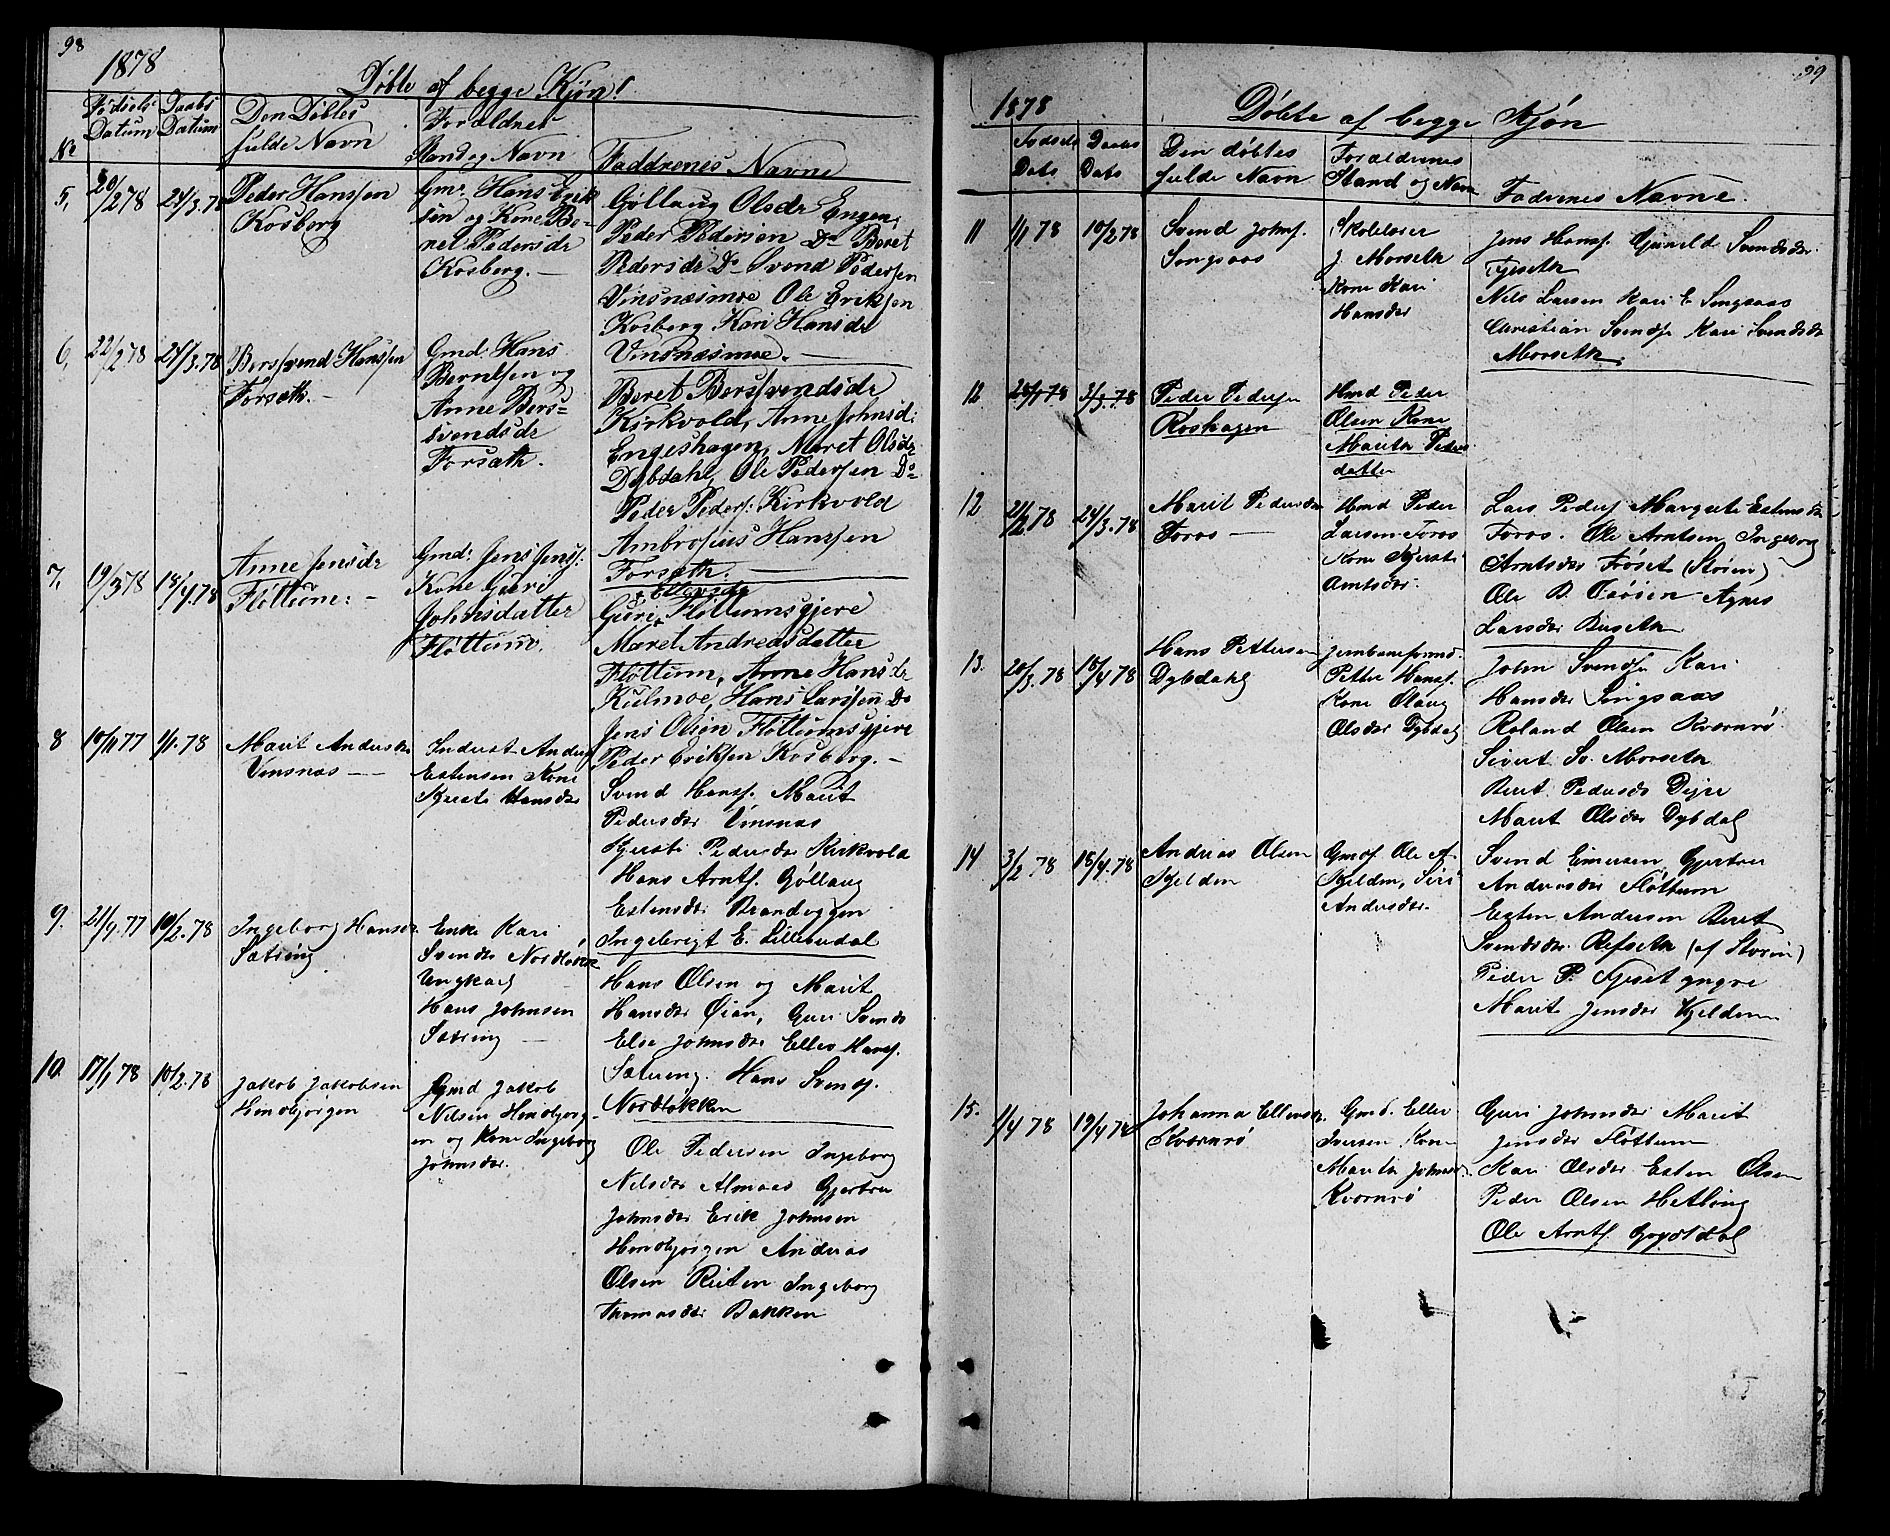 98
1878
Døbte af begge Kjøn!
No
Fødsels Datum
Daabs Datum
Den Døbtes fulde Navn
Forældres Stand og Navn
Faddrenes Navne
5, 20/2 78 24/3.78
Peder Hanssen
Kosberg
Gmr Hans Erik
sen og Kone Be-
ret Pedersdr
Kosberg. —
Gøllaug Olsdr Engen,
Peder Pedersen Do Beret
Pedersdr Do Svend Pedersen
Vinsnæsmoe Ole Eriksen
Kosberg Kari Hansdr
Vinsnæsmoe. —
6, 22/2 78 24/3.78
Bersvend Hanssen
Forsæth. —
Gmd: Hans
Berntsen og
Anne Bers=
svendsdr
Forsæth.
Beret Bersvendsdr
Kirkvold, Anne Johnsd:
Engeshagen, Maret Olsdr
Dybdahl, Ole Pedersen Do
Peder Peders: Kirkvold
Ambrosius Hanssen
Forsæth. —
7, 19/3 78 18/4.78
Anne Jensdr
Fløttum: —
Gmd: Jens Jens:
Kone Guri
Johnsdatter
Fløttum.
Ellevsdr
Guri Fløttumsgjere
Maret Andreasdatter
Fløttum, Anne Hansdr
Kulmoe, Hans Larssen Do
Jens Olsen Fløttumsgjere
Peder Eriksen Kosberg. —
8 10/11 77 1/1.78
Marit Andersdr
Vinsnas —
Inderst Anders
Estensen Kone
Kjersti Hansdr
Svend Hansf. Marit
Pedersdr Vinsnas
Kjersti Pedersdr Kirkvold
Hans Arntf. Gøllaug
Estensdr Brandeggen
Ingebrigt E. Lilleeudal
9. 21/9.77 10/2.78
Ingeborg Hansdr
Sætring
Enke Kari
Svendsdr Nordløkk
Ungkarl
Hans Johnsen
Sætring —
Hans Olsen og Marit
Hansdr Øian, Guri Svends
Else Johnsdr Ellev Hansf.
Sætring. Hans Svendf.
Norløkken
10. 17/1 78 10/2.78
Jakob Jakobsen
Hindbjørgen
Gmd Jakob
Nilsen Hindbjørg-
en og Kone Ingeborg
Johnsdr.
Ole Pedersen Ingeborg
Nilsdr Almaas Gjertru
Johnsdr Erik Johnsen
Hindbjørgen Andreas
Olsen Reiten Ingeborg
Thomasdr Bakken
99
1878
Døbte af begge Kjøn
Fødsels Dato
Daabs Dato
Den døbtes fulde Navn
Forældrenes Stand og Navn
Fadrenes Navne.
11 1/1 78 10/2 78
Svend Johnf.
Singsaas
Skolelærer
J. Morseth
Kone Kari
Hansdr
Jens Hansf. Gunild Svendsdr
Fjeseth
Nils Larsen Kari E Singsaas
Christian Svendf Kari Svendsdr
Morseth.
12 24/1 78 3/3.78
Peder Pedersen
Roshagen
Hmd Peder
Olsen Kone
Marith Peders
datter
12 21/2 78 24/3.78
Marit Pedersdr
Foros —
Hmd Peder
Larsen Foros
Kone Kjersti
Arntsdr.
Lars Pedersf Margrete Estensdr
Foros. Ole Arntsen, Ingeborg
Arntsdr Frøset (Støren)
Ole B. Agnes
Larsdr Buseth
13. 20/3.78 18/4 78
Hans Pettersen
Dybdahl
Jernbaneformd.
Petter Hansf.
Kone Olaug
Olsdr Dybdal
John Svendf Kari
Hansdr Singsaas
Roland Olsen Kvernrø
Sivert Sv. Morseth
Beret Pedersdr Digre
Marit Olsdr Dybdal
14 3/2 78 18/4.78
Andreas Olsen
Kjelden
Gmdf. Ole A.
Kjelden, Siri
Andersdr.
Svend Einersen, Gjertru
Andersdr Fløttum
Esten Andersen Beret
Svendsdr Refseth (af Støren)
Peder P. Fjeset yngre
Marit Jensdr Kjelden
15. 1/4 78 19/4 78
Johanna Ellevsdr.
Kvernrø
Gmd. Ellev
Iversen Kone
Marith Johnsdr
Kvernrø
Guri Johnsdr Marit
Jensdr Fløttum
Kari Olsdr Esten Olsen
Peder Olsen Hetling
Ole Arntf.